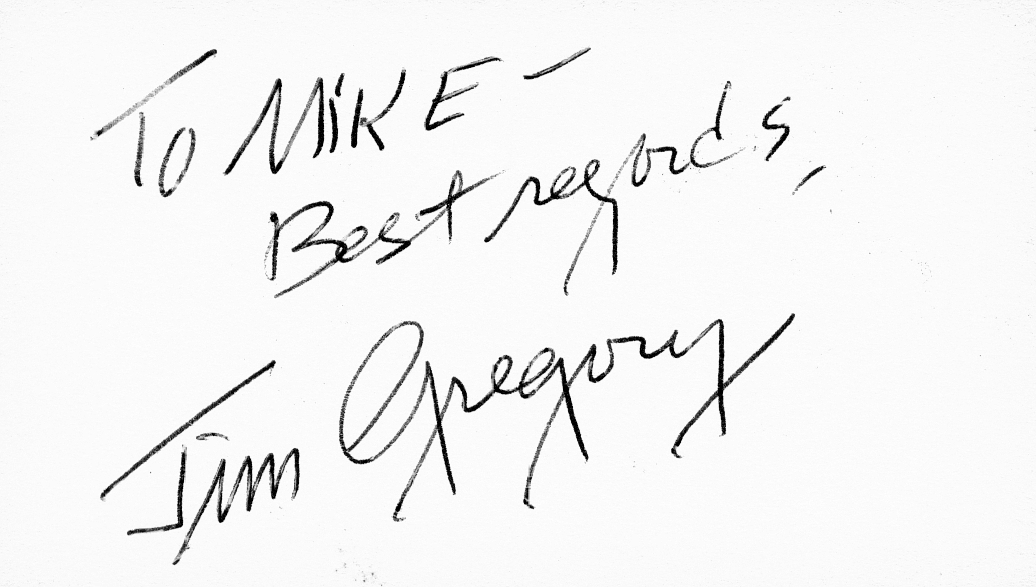 To MIKE –
Best regards,
Jim Gregory